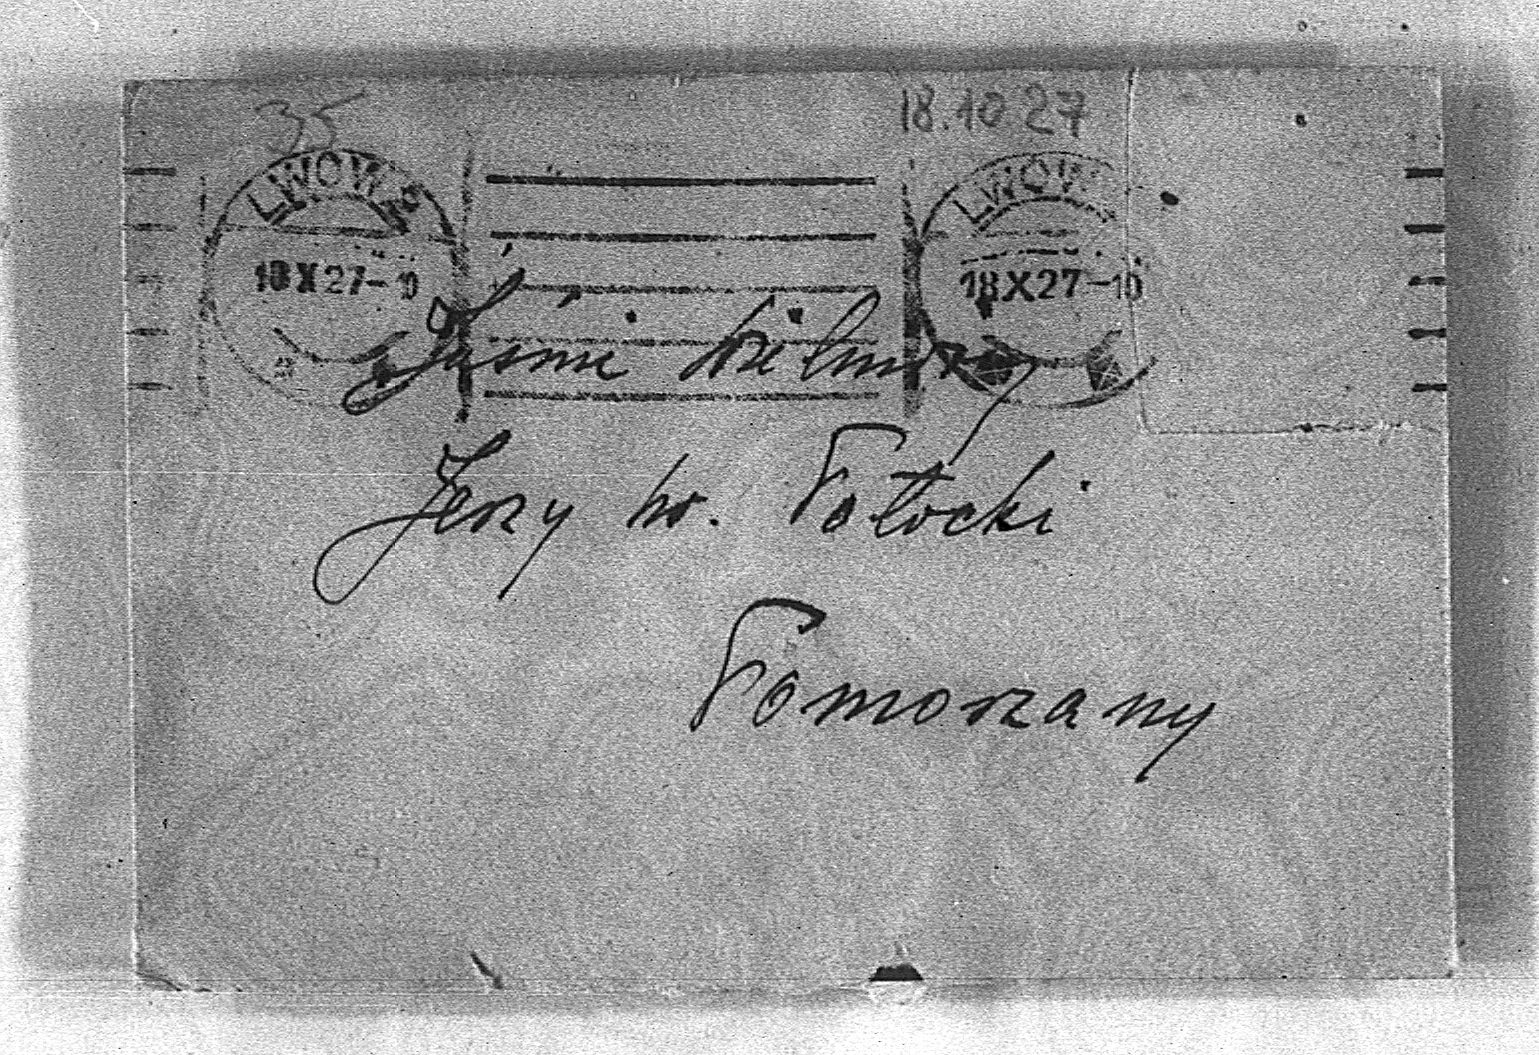 35
18.10 27
LWÓW LWÓW
18 X 27 - 10 18 X 27 - 10
Jaśnie Wielmożny
Jerzy hr. Potocki
Pomorzany